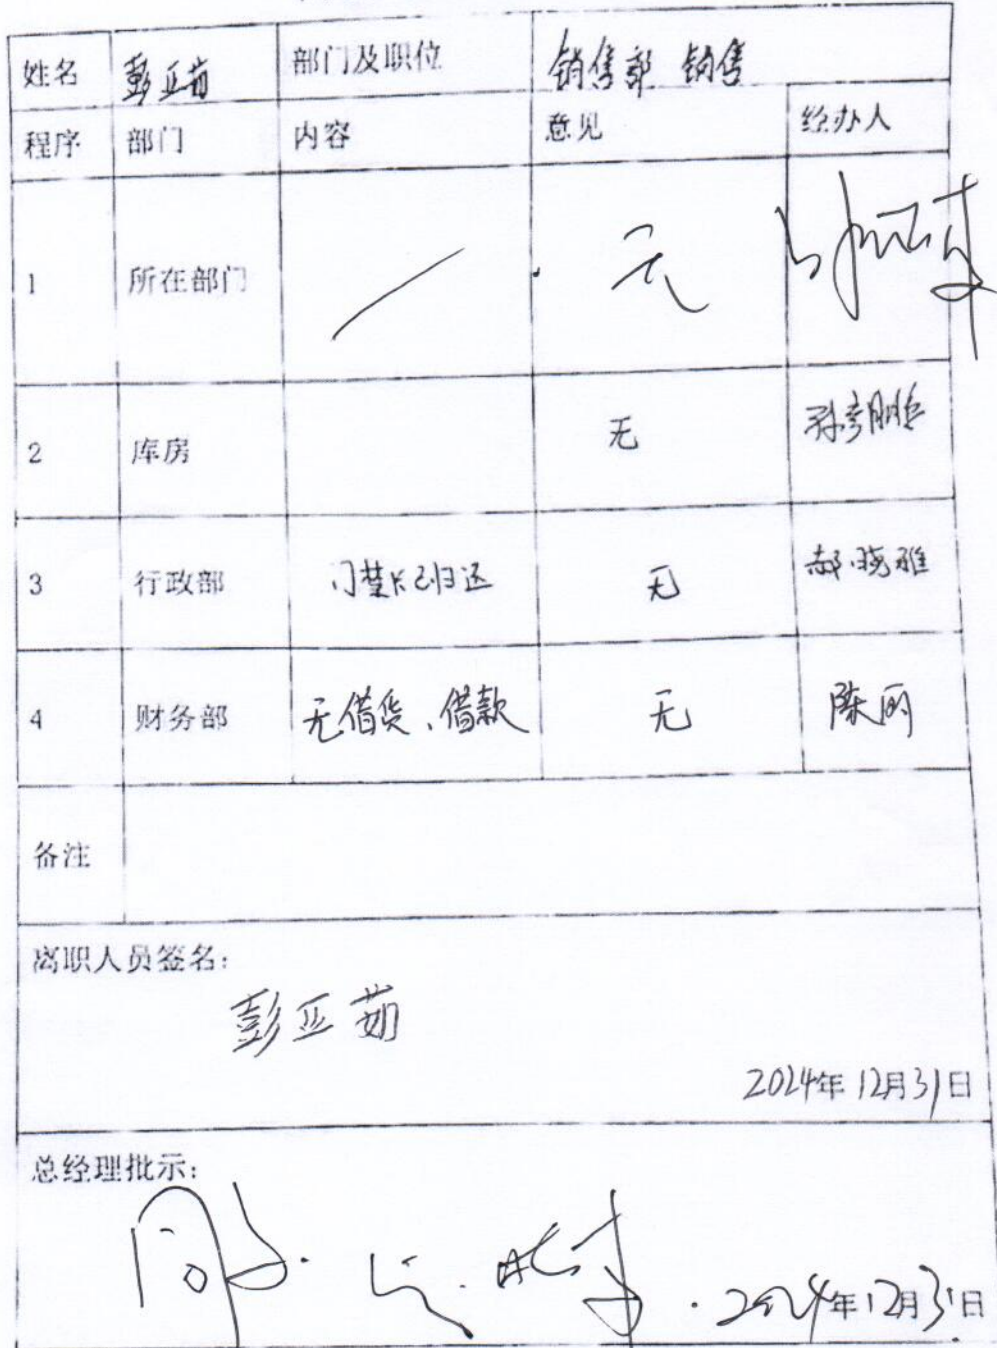 姓名 彭亚茹 部门及职位 销售部 销售
程序 部门 内容 意见 经办人
1 所在部门 无
2 库房 无
3 行政部 门禁卡已归还 无 郝晓雅
4 财务部 无借货、借款 无 陈丽
备注
离职人员签名：
彭亚茹
2024年12月31日
总经理批示：
同意.
2024年12月31日